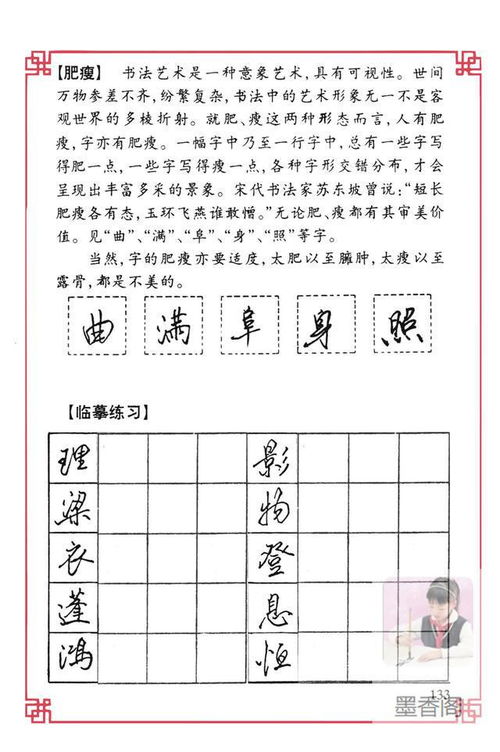 【肥瘦】 书法艺术是一种意象艺术,具有可视性。世间
万物参差不齐,纷繁复杂,书法中的艺术形象无一不是客
观世界的多棱折射。就肥、瘦这两种形态而言,人有肥
瘦,字亦有肥瘦。一幅字中乃至一行字中,总有一些字写
得肥一点,一些字写得瘦一点,各种字形交错分布,才会
呈现出丰富多采的景象。宋代书法家苏东坡曾说:“短长
肥瘦各有态,玉环飞燕谁敢憎。”无论肥、瘦都有其审美价
值。见“曲”、“满”、“阜”、“身”、“照”等字。
当然,字的肥瘦亦要适度,太肥以至臃肿,太瘦以至
露骨,都是不美的。
曲 满 阜 身 照
【临摹练习】
理 影
梁 物
衣 登
蓬 息
鸿 恒
133
墨香阁